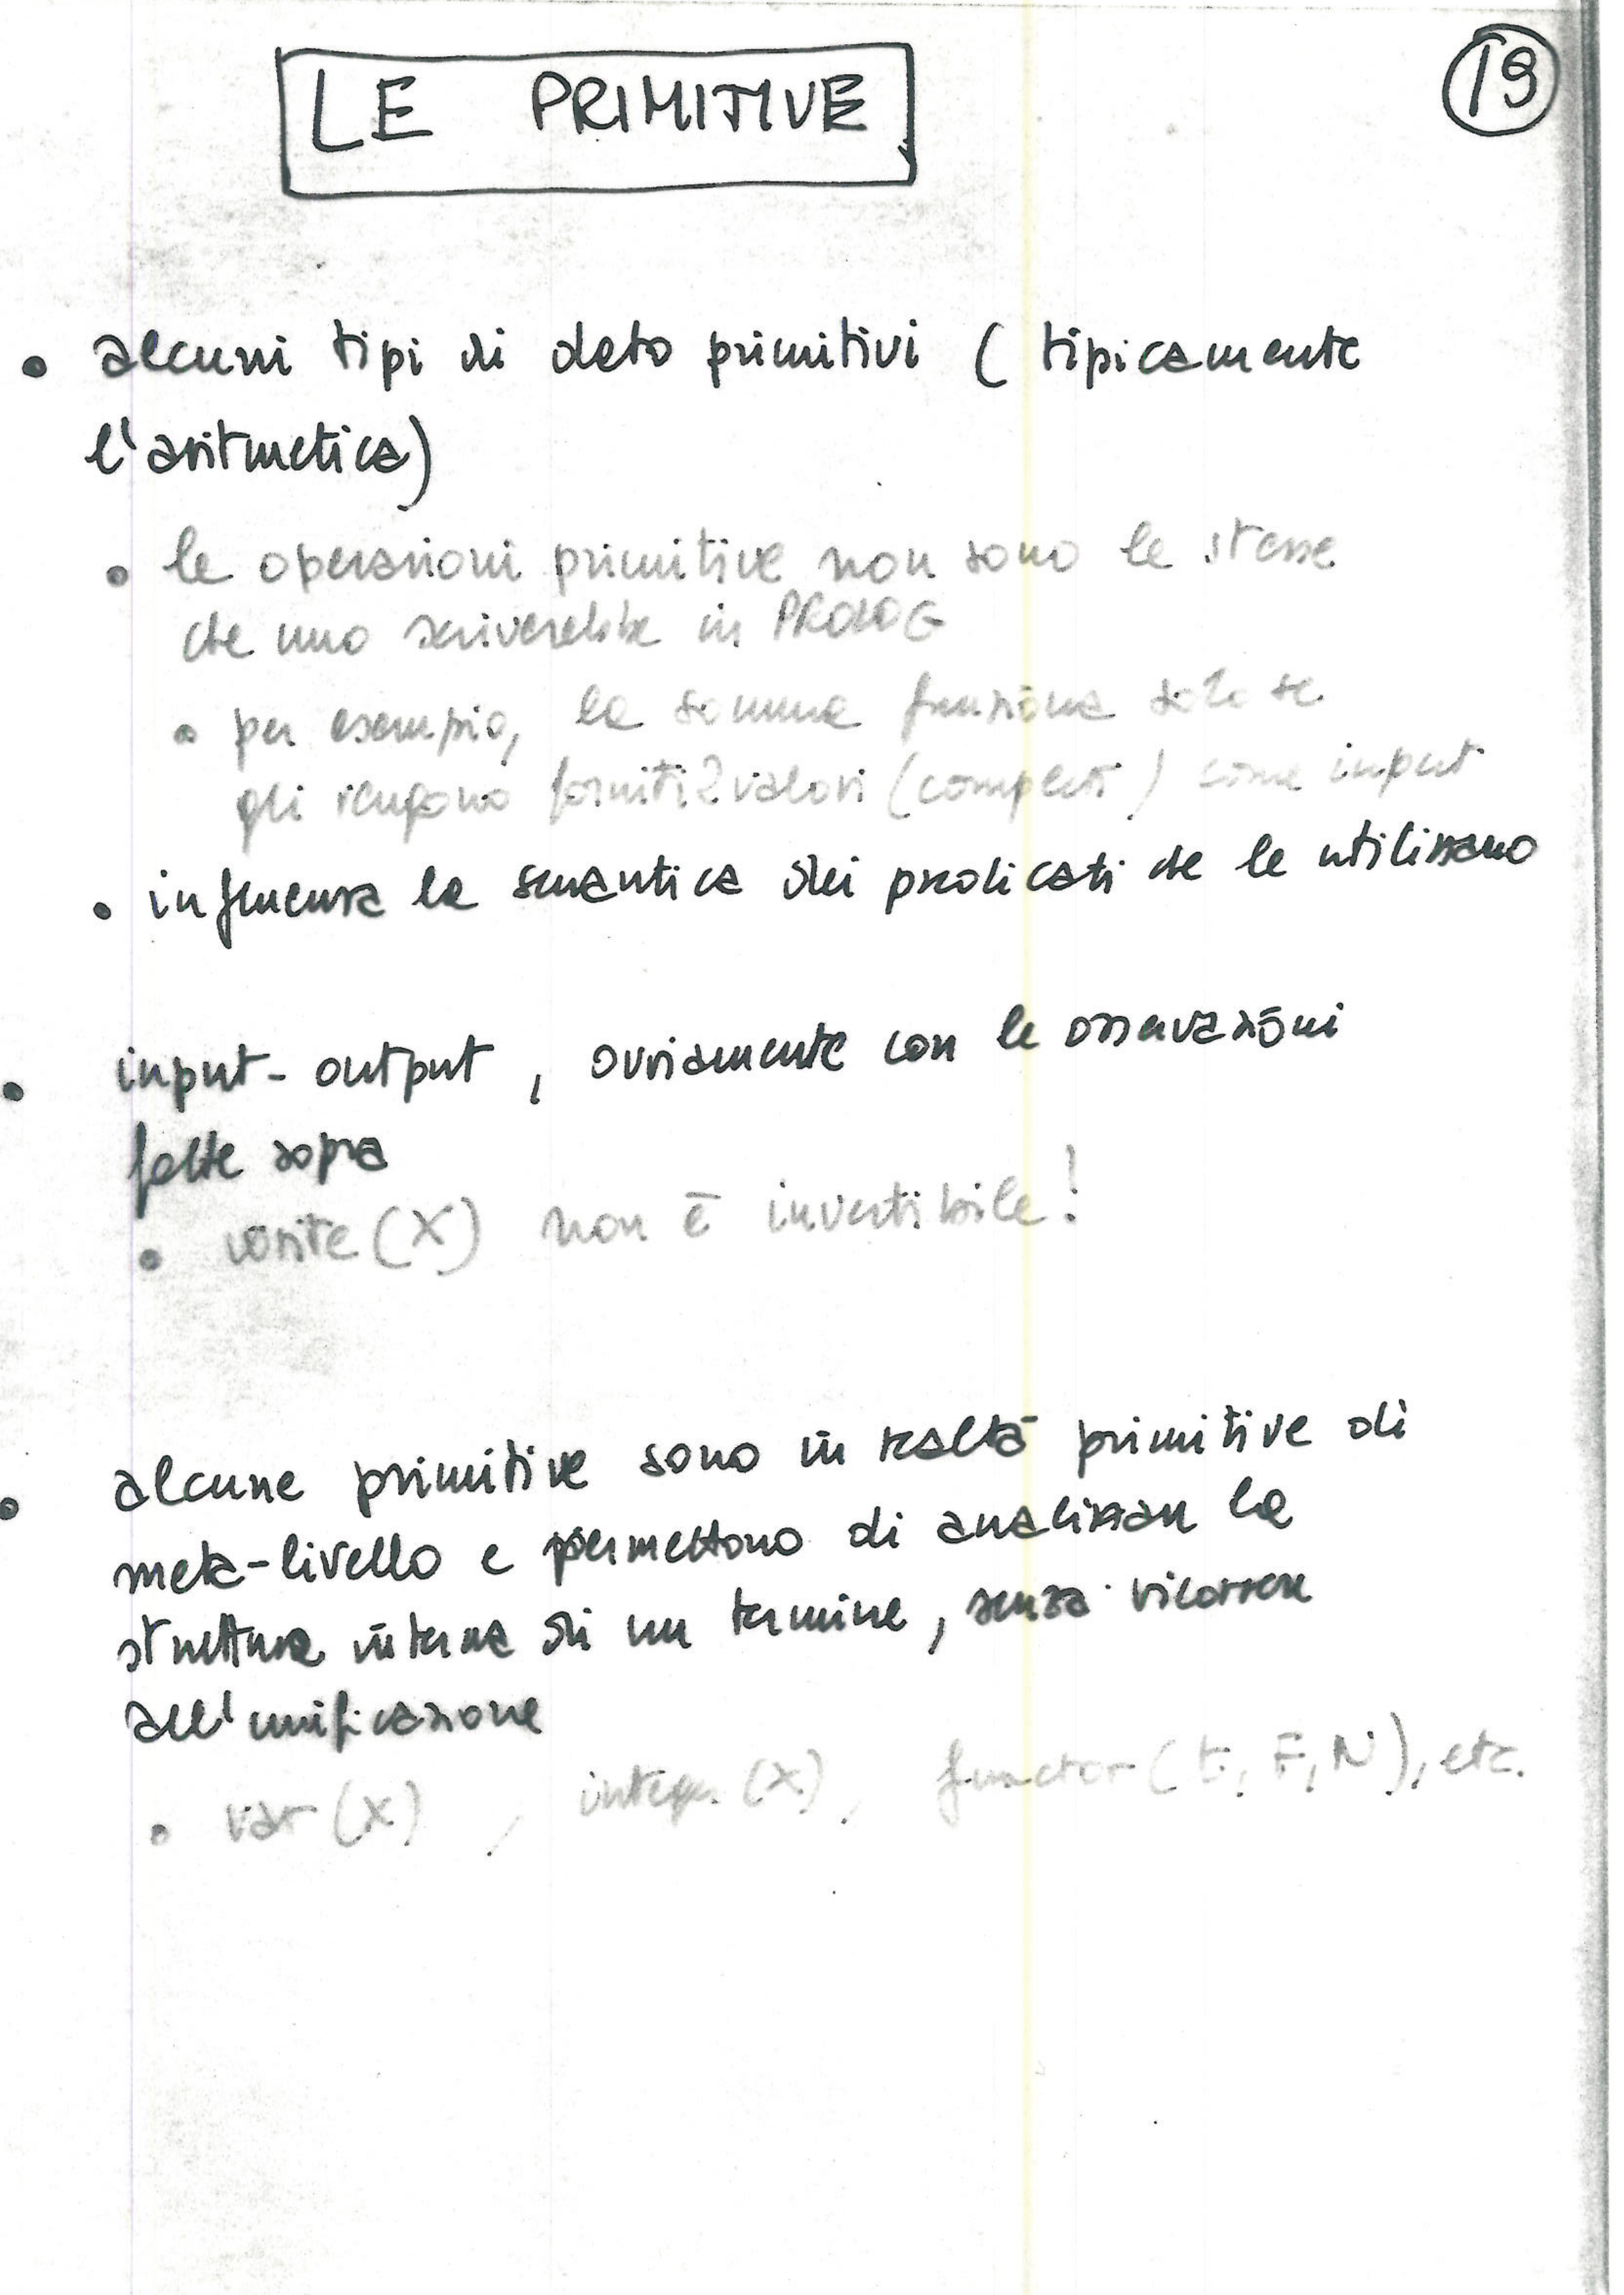 LE PRIMITIVE
19
• alcuni tipi di dato primitivi ( tipicamente
l'aritmetica)
• le operazioni primitive non sono le stesse
che uno scriverebbe in PROLOG
• per esempio, la somma funziona solo se
gli vengono forniti 2 valori (completi) come input
• influenza la semantica dei predicati che le utilizzano
• input-output, ovviamente con le osservazioni
fatte sopra
• write (X) non è invertibile!
• alcune primitive sono in realtà primitive di
meta-livello e permettono di analizzare la
struttura interna di un termine, senza ricorrere
all'unificazione
• var (X), integer (X), functor (t, F, N), etc.